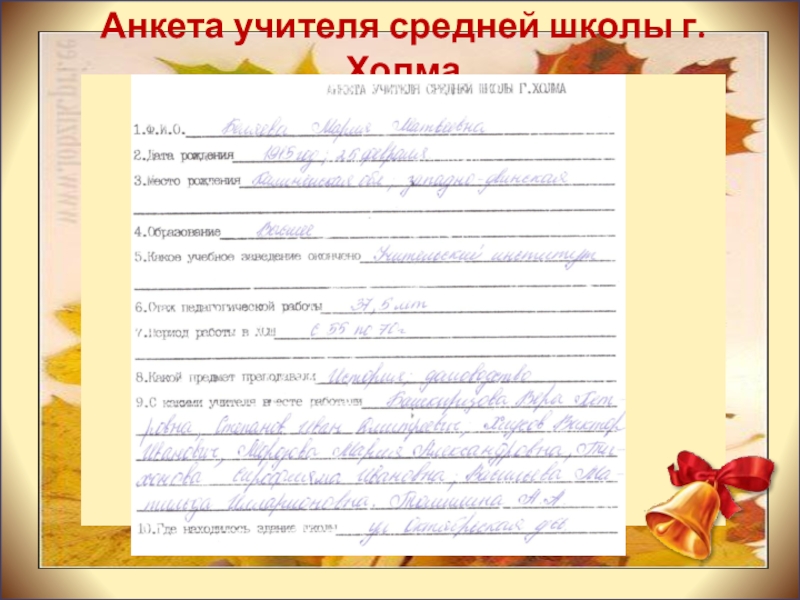 Анкета учителя средней школы г.
Холма
АНКЕТА УЧИТЕЛЯ СРЕДНЕЙ ШКОЛЫ Г.ХОЛМА
1.Ф.И.О. Беляева Мария Матвеевна
2.Дата рождения 1915 год; 25 февраля
3.Место рождения Калининская обл; западно-двинская
4.Образование Высшее
5.Какое учебное заведение окончено Учительский институт
6.Стаж педагогической работы 37,5 лет
7.Период работы в с 55 по 70 г
8.Какой предмет преподавали История; домоводство
9.С какими учителя вместе работали Вера Пет-
ровна, Степанов Иван Дмитриевич, Виктор
Иванович, Мария Александровна, Ти-
хонова Ивановна; Васильева Ма-
тильда Илларионовна. А.А
10.Где находилось здание школы ул. Октябрьская
www.lobzikpri.ee